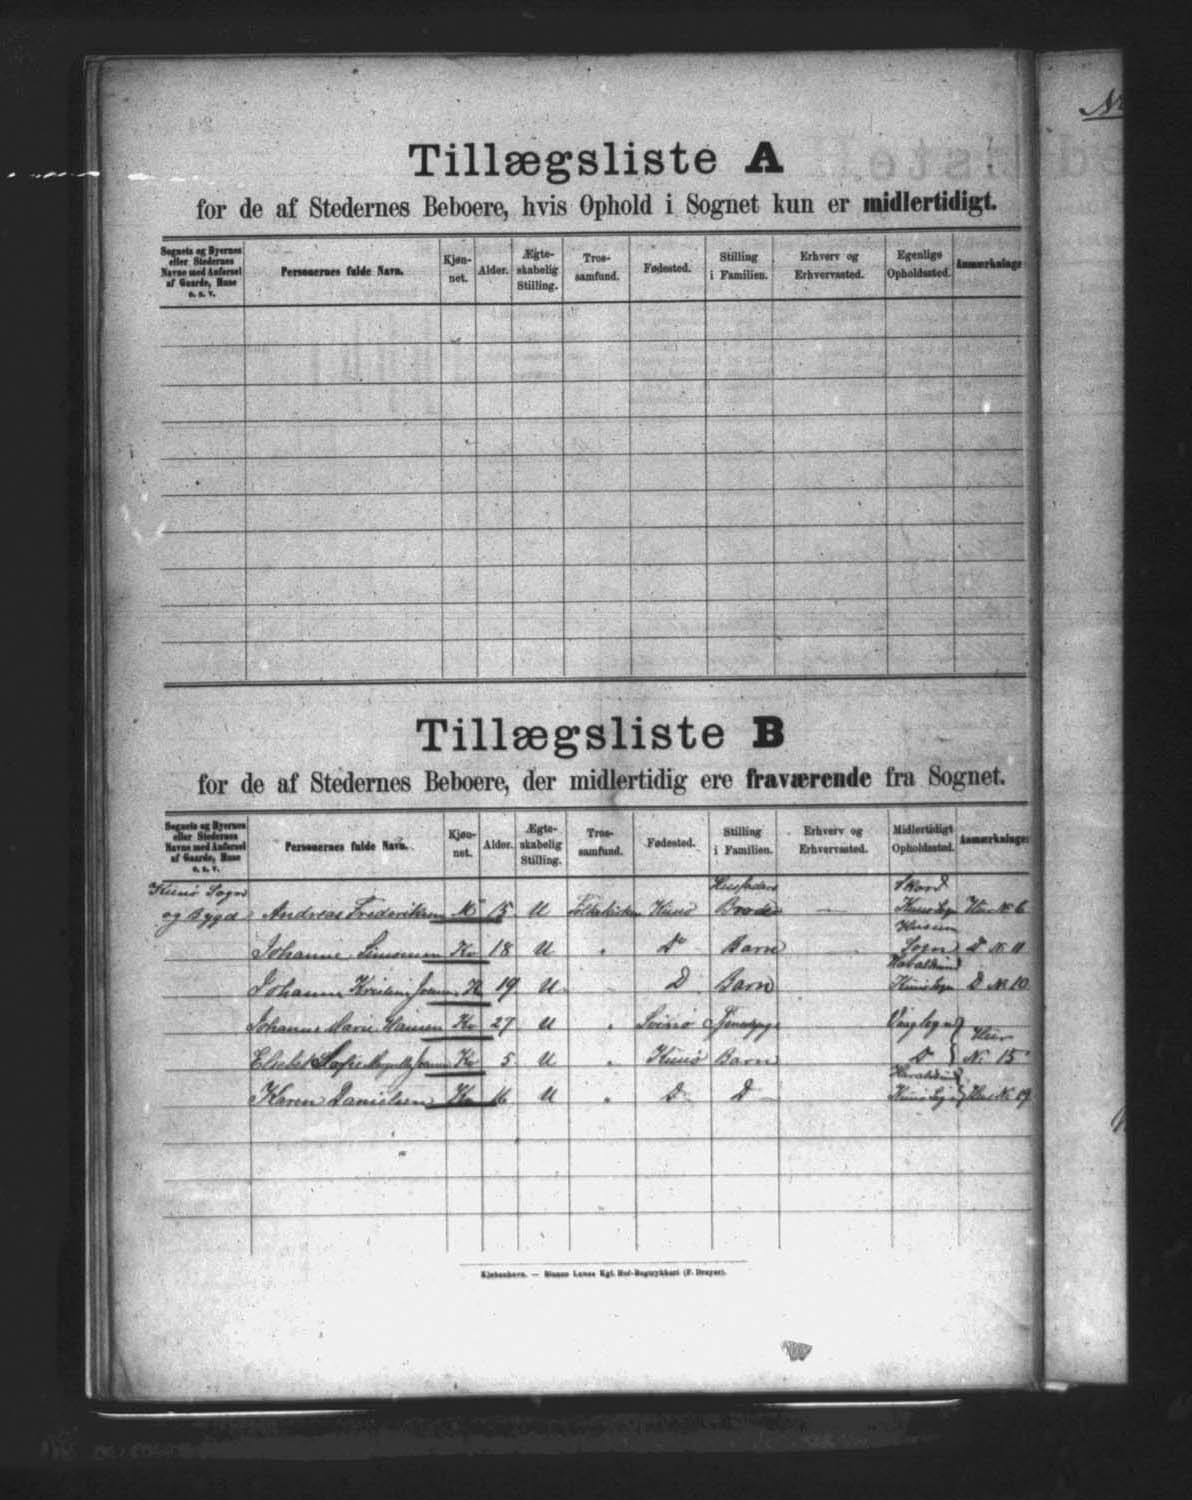 Tillægsliste A
for de af Stedernes Beboere, hvis Ophold i Sognet kun er midlertidigt.
Sognets og Byernes eller Stedernes Navne med Anførsel af Gaarde, Huse o. s. v. Personernes fulde Navn. Kjøn-net. Alder. Ægte-skabelig Stilling. Tros-samfund. Fødested. Stilling i Familien. Erhverv og Erhvervssted. Egenlige Opholdssted. Anmærkninger
Tillægsliste B
for de af Stedernes Beboere, der midlertidig ere fraværende fra Sognet.
Sognets og Byernes eller Stedernes Navne med Anførsel af Gaarde, Huse o. s. v. Personernes fulde Navn. Kjøn-net. Alder. Ægte-skabelig Stilling. Tros-samfund. Fødested. Stilling i Familien. Erhverv og Erhvervssted. Midlertidigt Opholdssted. Anmærkninger
Kunø Sogn Husfaders Skord
og Bygd Andreas Frederiksen M 15 U Folkekirken Kunø Broder — Kunø Sogn Hus No 6
Husum
Johanne Simonsen Kv 18 U " Do Barn Sogn D No 11
Haraldsund
Johanne Joensen K 19 U D Barn Kunø Sogn D No 10
Johanne Marie Hansen Kv 27 U " Svinø Vaag Sogn } Hus
Elsebet Sofie Joensen Kv 5 U " Kunø Barn D } No 15
Haraldsund
Karen Danielsen Kv 16 U " D D Kunø Sogn } Hus No 19
Kjøbenhavn. — Bianco Lunos Kgl. Hof-Bogtrykkeri (F. Dreyer).